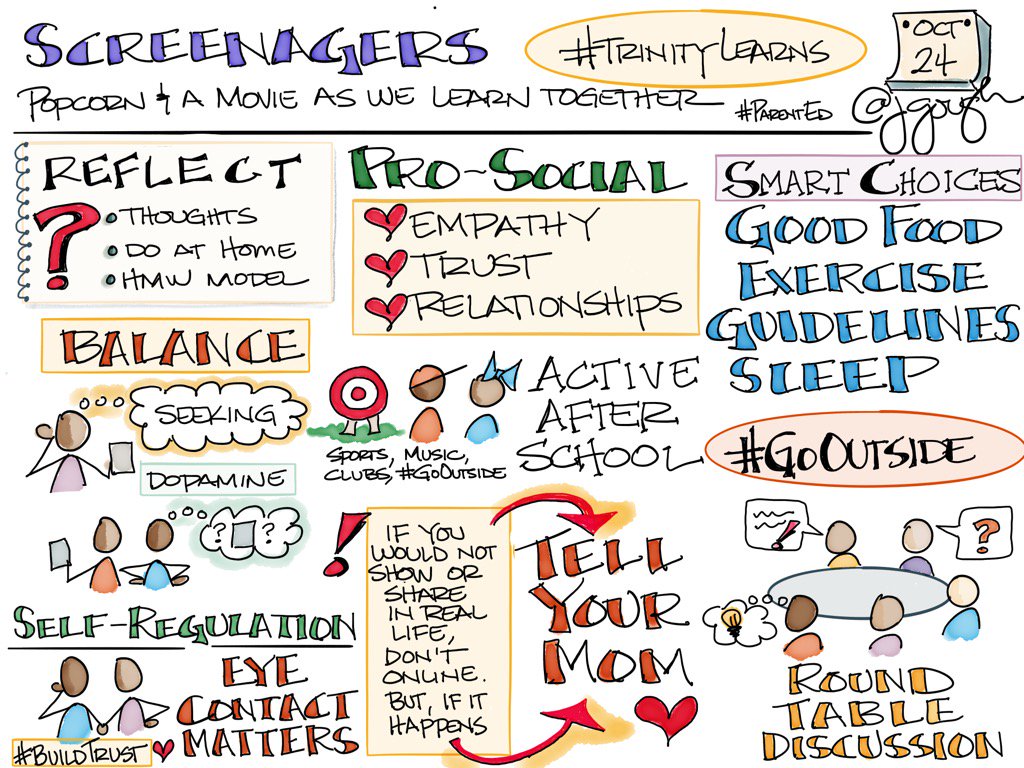 SCREENAGERS
#TRINITYLEARNS
OCT
24
POPCORN & A MOVIE AS WE LEARN TOGETHER
#PARENTED
@jgough
REFLECT
?
• THOUGHTS
• DO AT HOME
• HMW MODEL
PRO-SOCIAL
EMPATHY
TRUST
RELATIONSHIPS
SMART CHOICES
GOOD FOOD
EXERCISE
GUIDELINES
SLEEP
BALANCE
SEEKING
DOPAMINE
? ?
SPORTS, MUSIC,
CLUBS, #GOOUTSIDE
ACTIVE
AFTER
SCHOOL
#GOOUTSIDE
SELF-REGULATION
EYE
CONTACT
MATTERS
#BUILDTRUST
!
IF YOU
WOULD NOT
SHOW OR
SHARE
IN REAL
LIFE,
DON'T
ONLINE.
BUT, IF IT
HAPPENS
TELL
YOUR
MOM
!
?
ROUND
TABLE
DISCUSSION